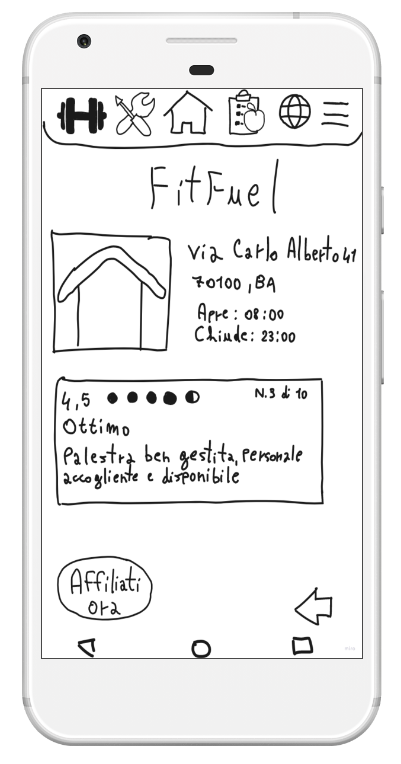 FitFuel
Via Carlo Alberto 41
70100, BA
Apre: 08:00
Chiude: 23:00
4,5
N.3 di 10
Ottimo
Palestra ben gestita, personale
accogliente e disponibile
Affiliati
ora